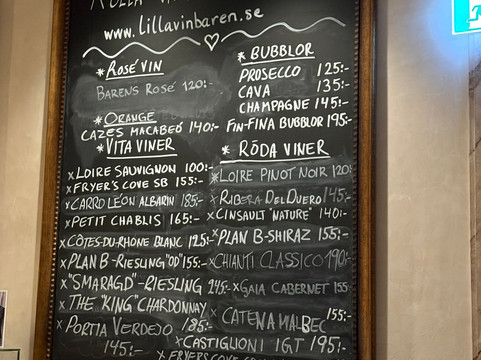 www.lillavinbaren.se
* ROSÉ VIN
BARENS ROSÉ 120:-
* ORANGE
CAZES MACABEO 140:-
* BUBBLOR
PROSECCO 125:-
CAVA 135:-
CHAMPAGNE 145:-
FIN-FINA BUBBLOR 195:-
* VITA VINER
x LOIRE SAUVIGNON 100:-
x FRYER'S COVE SB 155:-
x CARRO LEÓN ALBARIN 185:-
x PETIT CHABLIS 165:-
x CÔTES-DU-RHONE BLANC 125:-
x PLAN B-RIESLING "OD" 155:-
x "SMARAGD"-RIESLING 245:-
x THE "KING" CHARDONNAY
185:-
x PORTIA VERDEJO
145:-
* RÖDA VINER
* LOIRE PINOT NOIR 120
x RIBERA DEL DUERO 145:-
x CINSAULT "NATURE" 140:-
x PLAN B-SHIRAZ 155:-
x CHIANTI CLASSICO 190:-
x GAIA CABERNET 155
x CATENA MALBEC 155:-
x CASTIGLIONI IGT 195:-
x FRYERS COVE